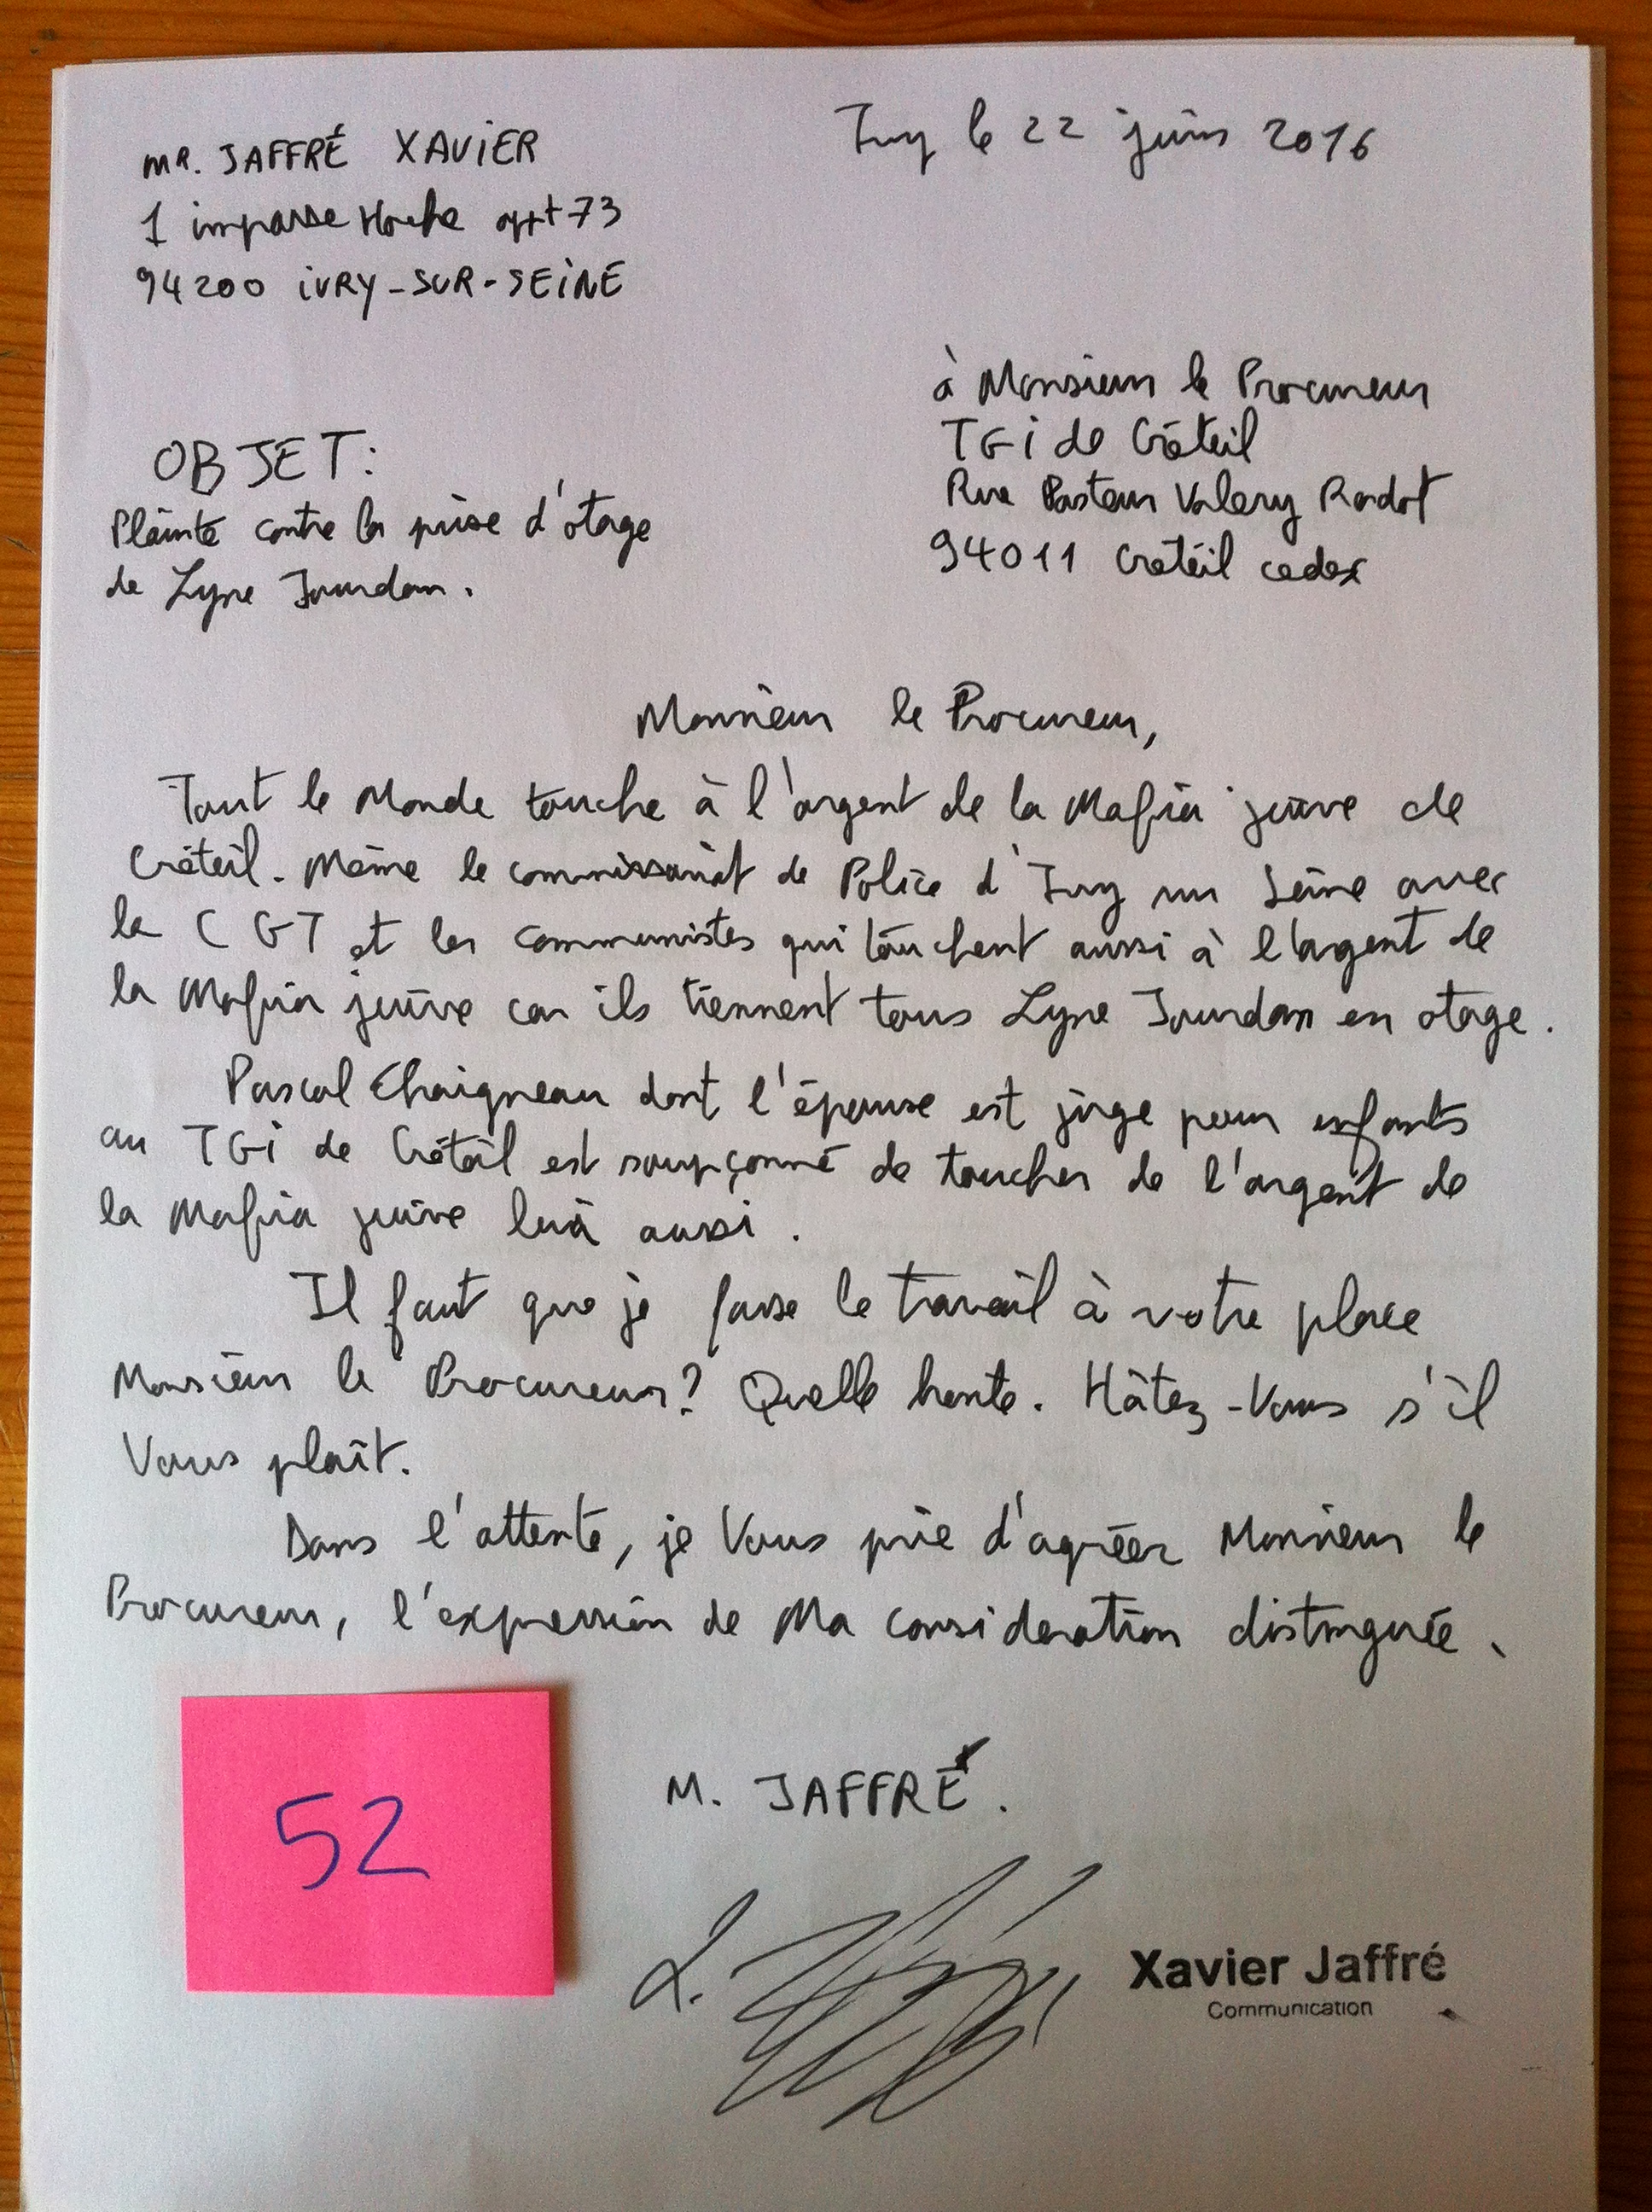 MR. JAFFRÉ XAVIER
1 impasse Hoche appt 73
94200 IVRY-SUR-SEINE
Ivry le 22 juin 2016
à Monsieur le Procureur
TGI de Créteil
Rue Pasteur Valery Radot
94011 Créteil cedex
OBJET:
Plainte contre la prise d'otage
de Lyne Jourdan.
Monsieur le Procureur,
Tout le Monde touche à l'argent de la Mafia juive de
Créteil. Même le commissariat de Police d'Ivry sur Seine avec
la CGT et les communistes qui touchent aussi à l'argent de
la Mafia juive car ils tiennent tous Lyne Jourdan en otage.
Pascal Chaigneau dont l'épouse est juge pour enfants
au TGI de Créteil est soupçonné de toucher de l'argent de
la Mafia juive lui aussi.
Il faut que je fasse le travail à votre place
Monsieur le Procureur? Quelle honte. Hâtez-Vous s'il
Vous plaît.
Dans l'attente, je Vous prie d'agréer Monsieur le
Procureur, l'expression de Ma consideration distinguée.
M. JAFFRÉ.
52
Xavier Jaffré
Communication